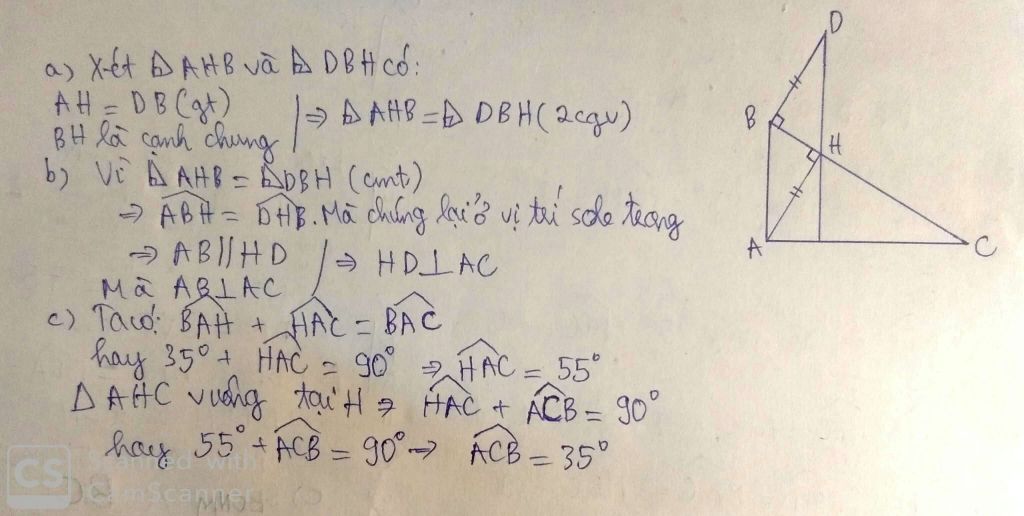 a) Xét ∆ AHB và ∆ DBH có:
AH = DB (gt)
BH là cạnh chung
⇒ ∆ AHB = ∆ DBH (2cgv)
b) Vì ∆ AHB = ∆DBH (cmt)
⇒ \widehat{ABH} = \widehat{DHB}. Mà chúng lại ở vị trí sole trong
⇒ AB//HD
Mà AB⊥AC
⇒ HD⊥AC
c) Ta có: \widehat{BAH} + \widehat{HAC} = \widehat{BAC}
hay 35° + \widehat{HAC} = 90° ⇒ \widehat{HAC} = 55°
∆ AHC vuông tại H ⇒ \widehat{HAC} + \widehat{ACB} = 90°
hay 55° + \widehat{ACB} = 90° → \widehat{ACB} = 35°
D
B
H
A
C
CS Scanned with
CamScanner